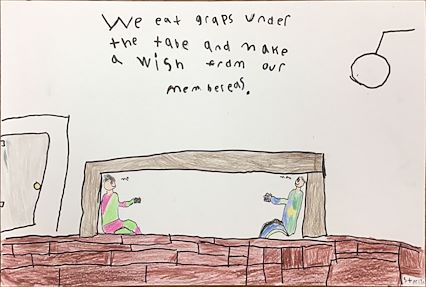 We eat graps under
the tabe and make
a wish from our
membereas.
me